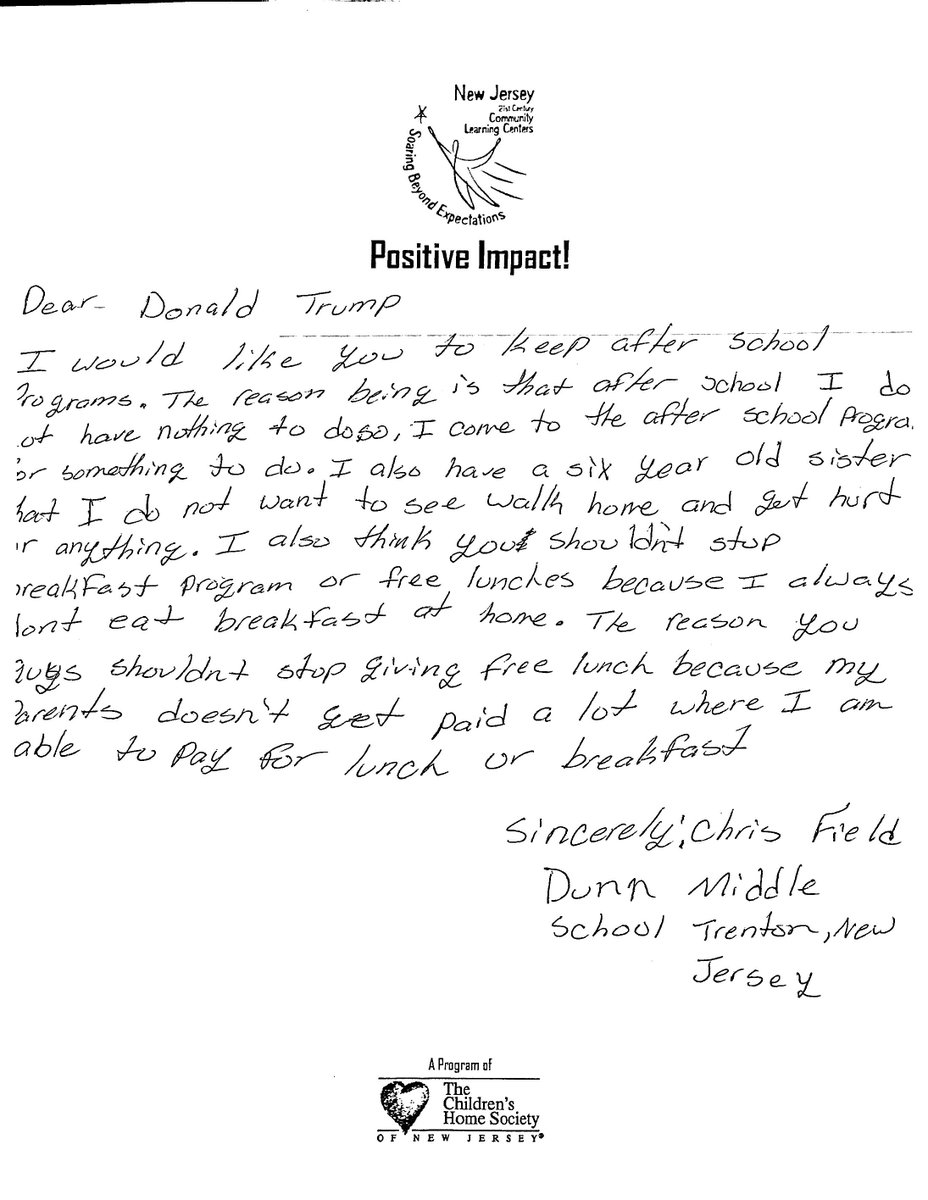 New Jersey
21st Century
Community
Learning Centers
Soaring Beyond Expectations
Positive Impact!
Dear- Donald Trump
I would like you to keep after school
rograms. The reason being is that after school I do
ot have nothing to doso, I come to the after school progra
or something to do. I also have a six year old sister
hat I do not want to see walk home and get hurt
r anything. I also think you shouldn't stop
reakfast program or free lunches because I always
dont eat breakfast at home. The reason you
guys shouldnt stop giving free lunch because my
Parents doesn't get paid a lot where I am
able to pay for lunch or breakfast
Sincerely, Chris Field
Dunn Middle
School Trenton, New
Jersey
A Program of
The
Children's
Home Society
OF NEW JERSEY®